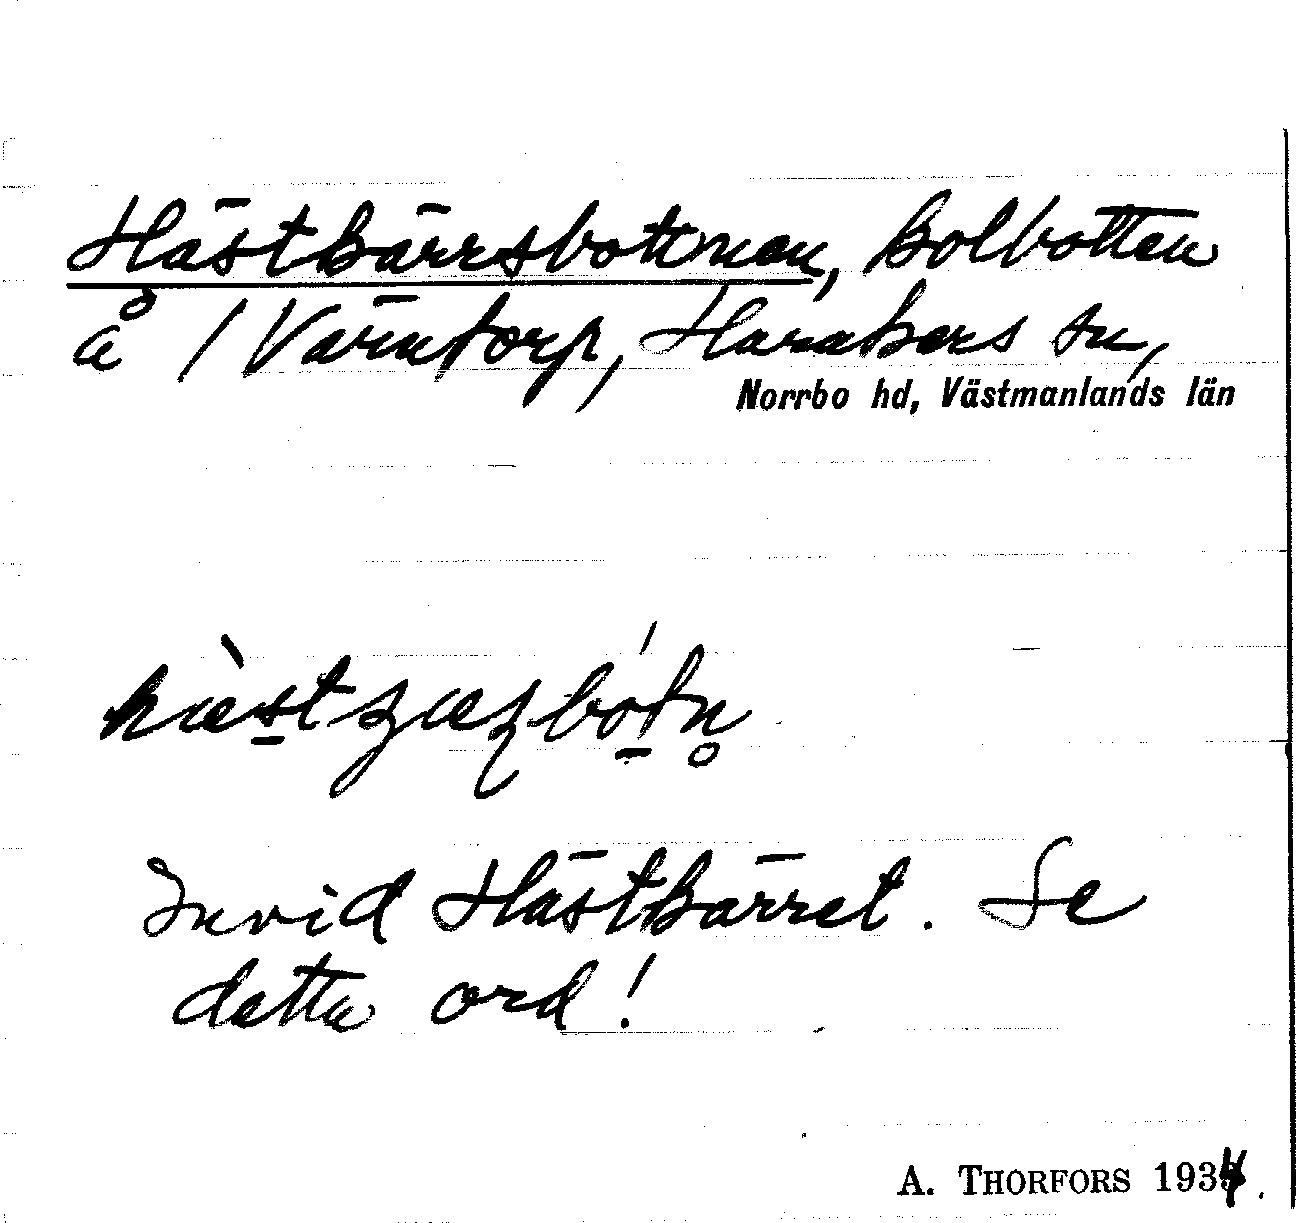 Hästkärrsbottnen, kolbotten
å /Värntorp, Haraker sn,
Norrbo hd, Västmanlands län
Invid Hästkärret. Se
detta ord!
A. THORFORS 1934.